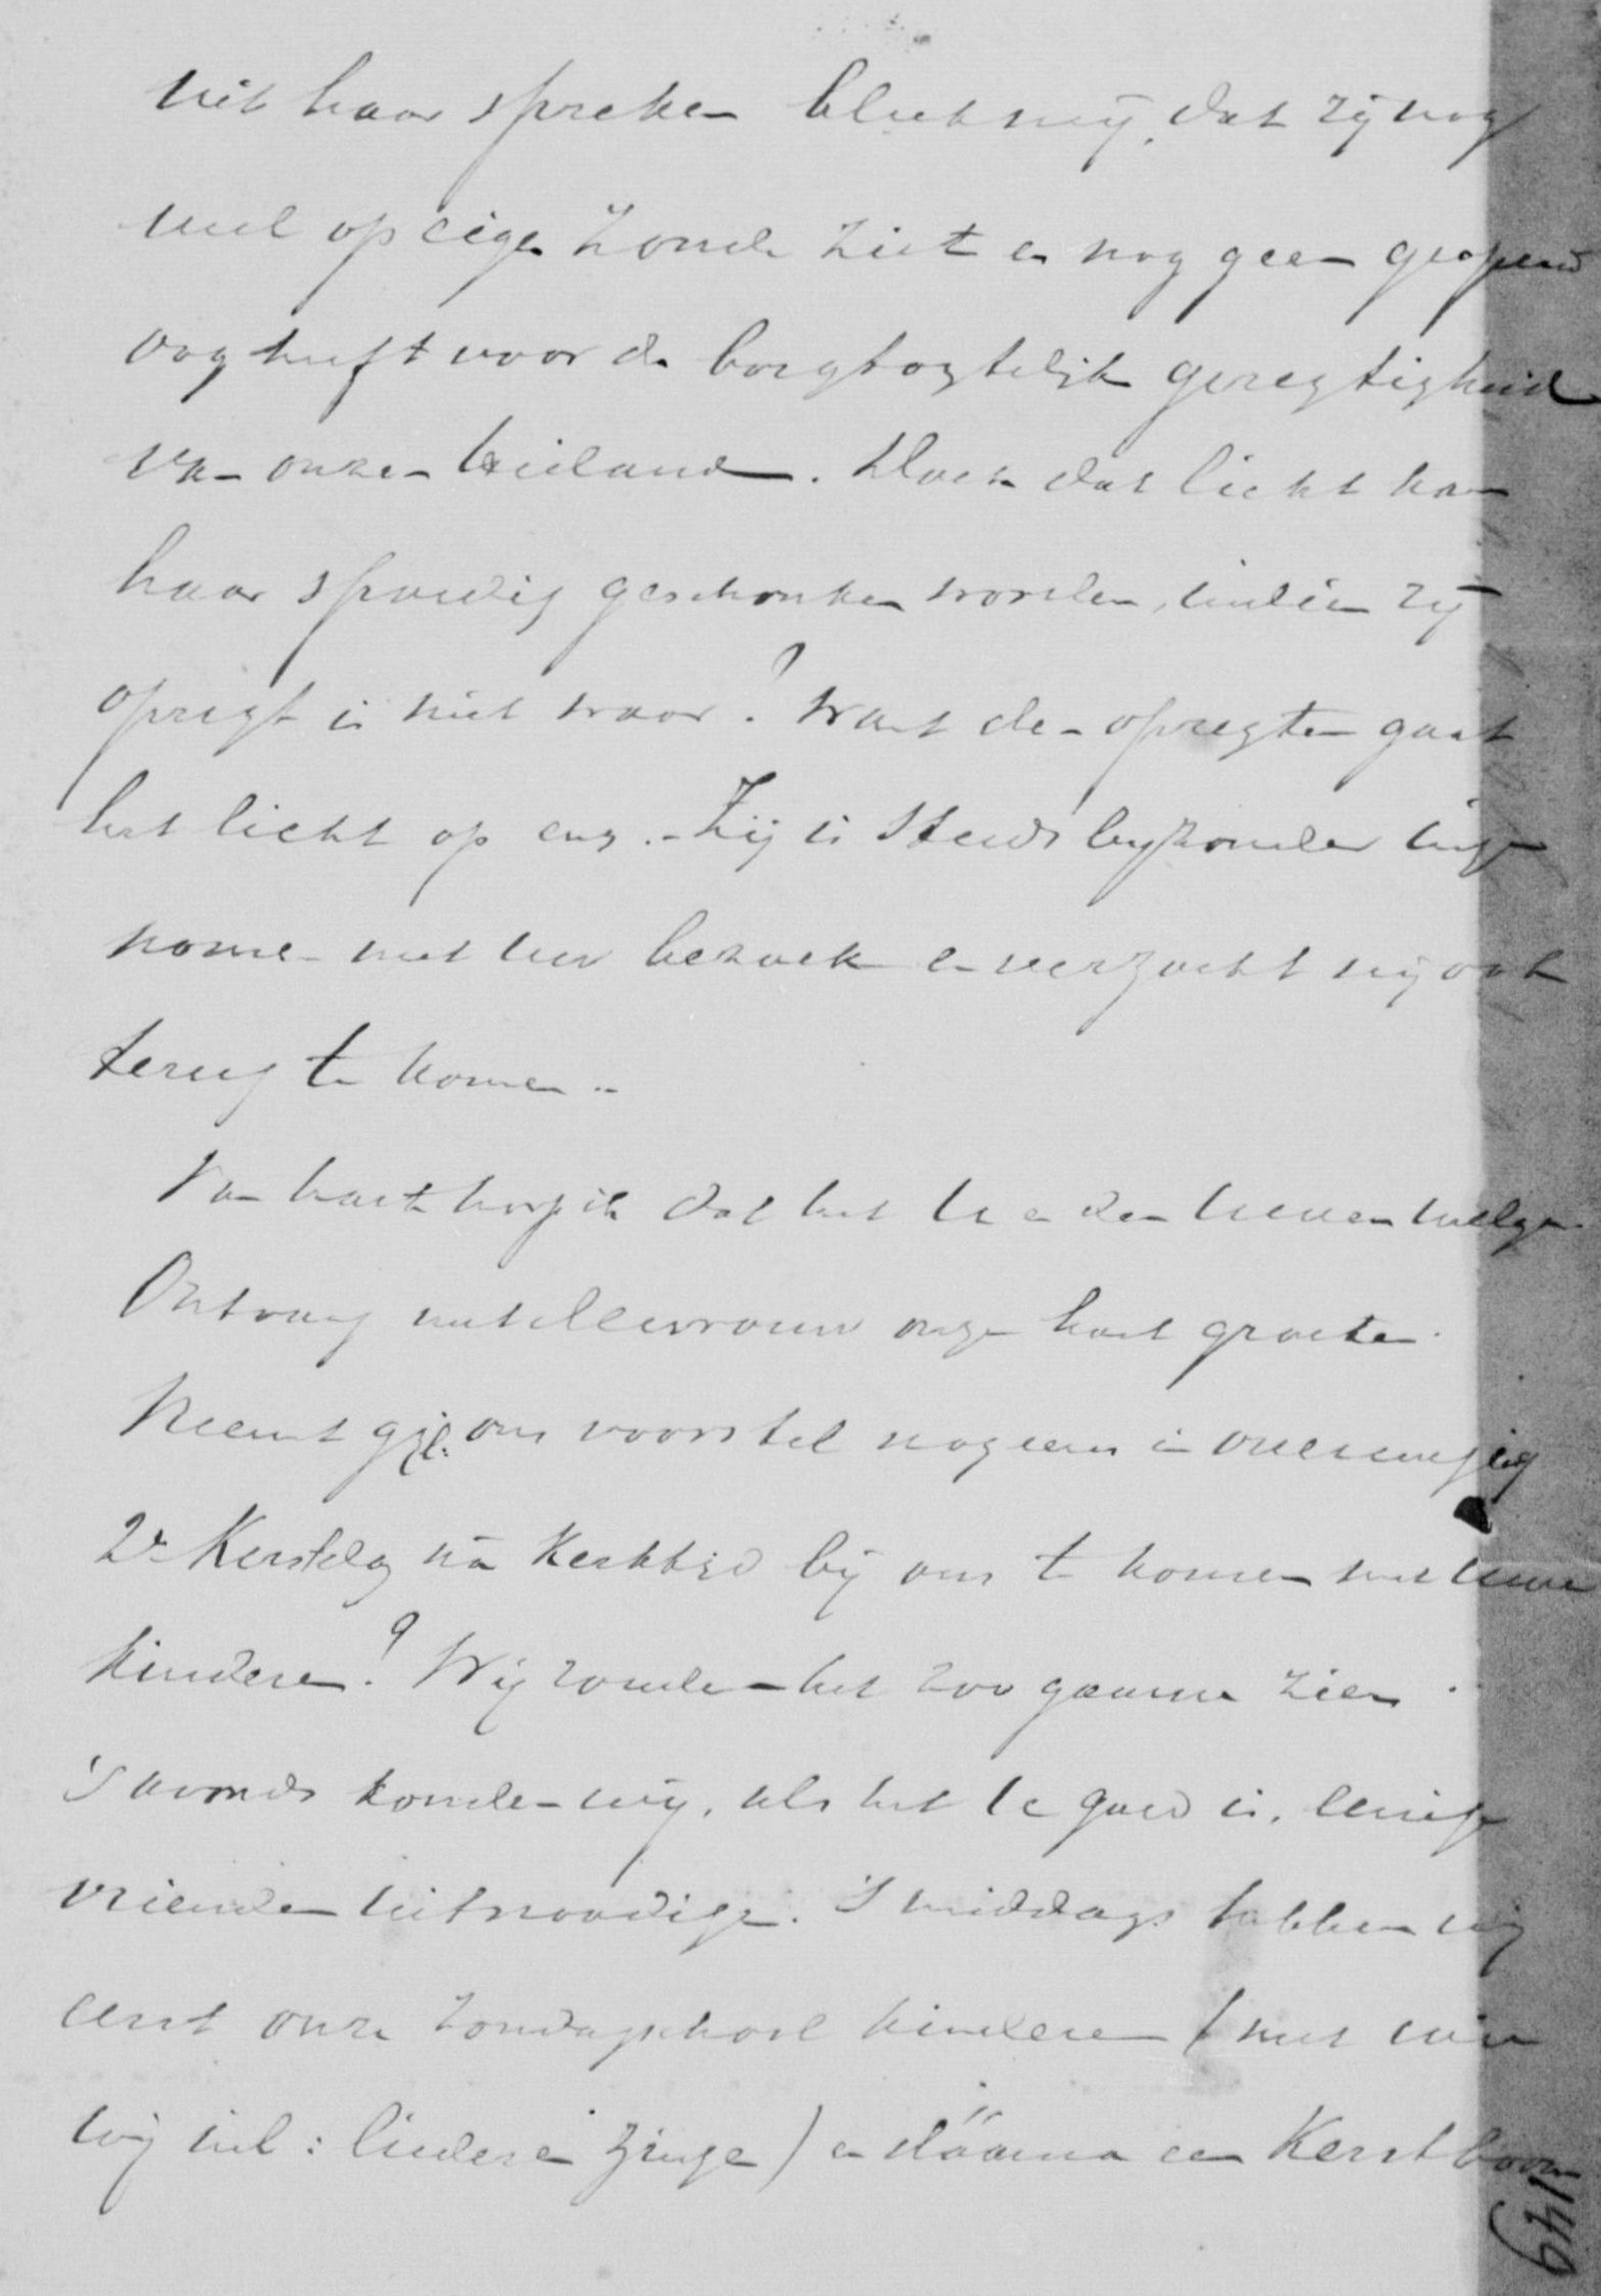 Uit haar spreken bleek mij, dat zij nog
veel op eigen zonde ziet en nog geen geopend
oog heeft voor de borgtogtelijke geregtigheid
van onzen Heiland. Doch dat licht kan
haar spoedig geschonken worden, indien zij
opregt is niet waar? Want den opregten gaat
het licht op enz. - Zij is steeds bijzonder inge
nomen met uw bezoek en verzocht mij ook
terug te komen.
Van harte hoop ik dat het U en den Uwen welga.
Ontvang met Mevrouw onze hart groeten.
Neemt gijl. ons voorstel nog eens in overweging
2e Kerstdag na kerktijd bij ons te komen met uwe
kinderen? Wij zouden het zoo gaarne zien.
's avonds konden wij, als het U goed is, eenige
vrienden uitnoodigen. 's middags hebben wij
eerst onze zondagschool kinderen (met wie
wij enl: liederen zingen) en dáárna een Kerstboom
149